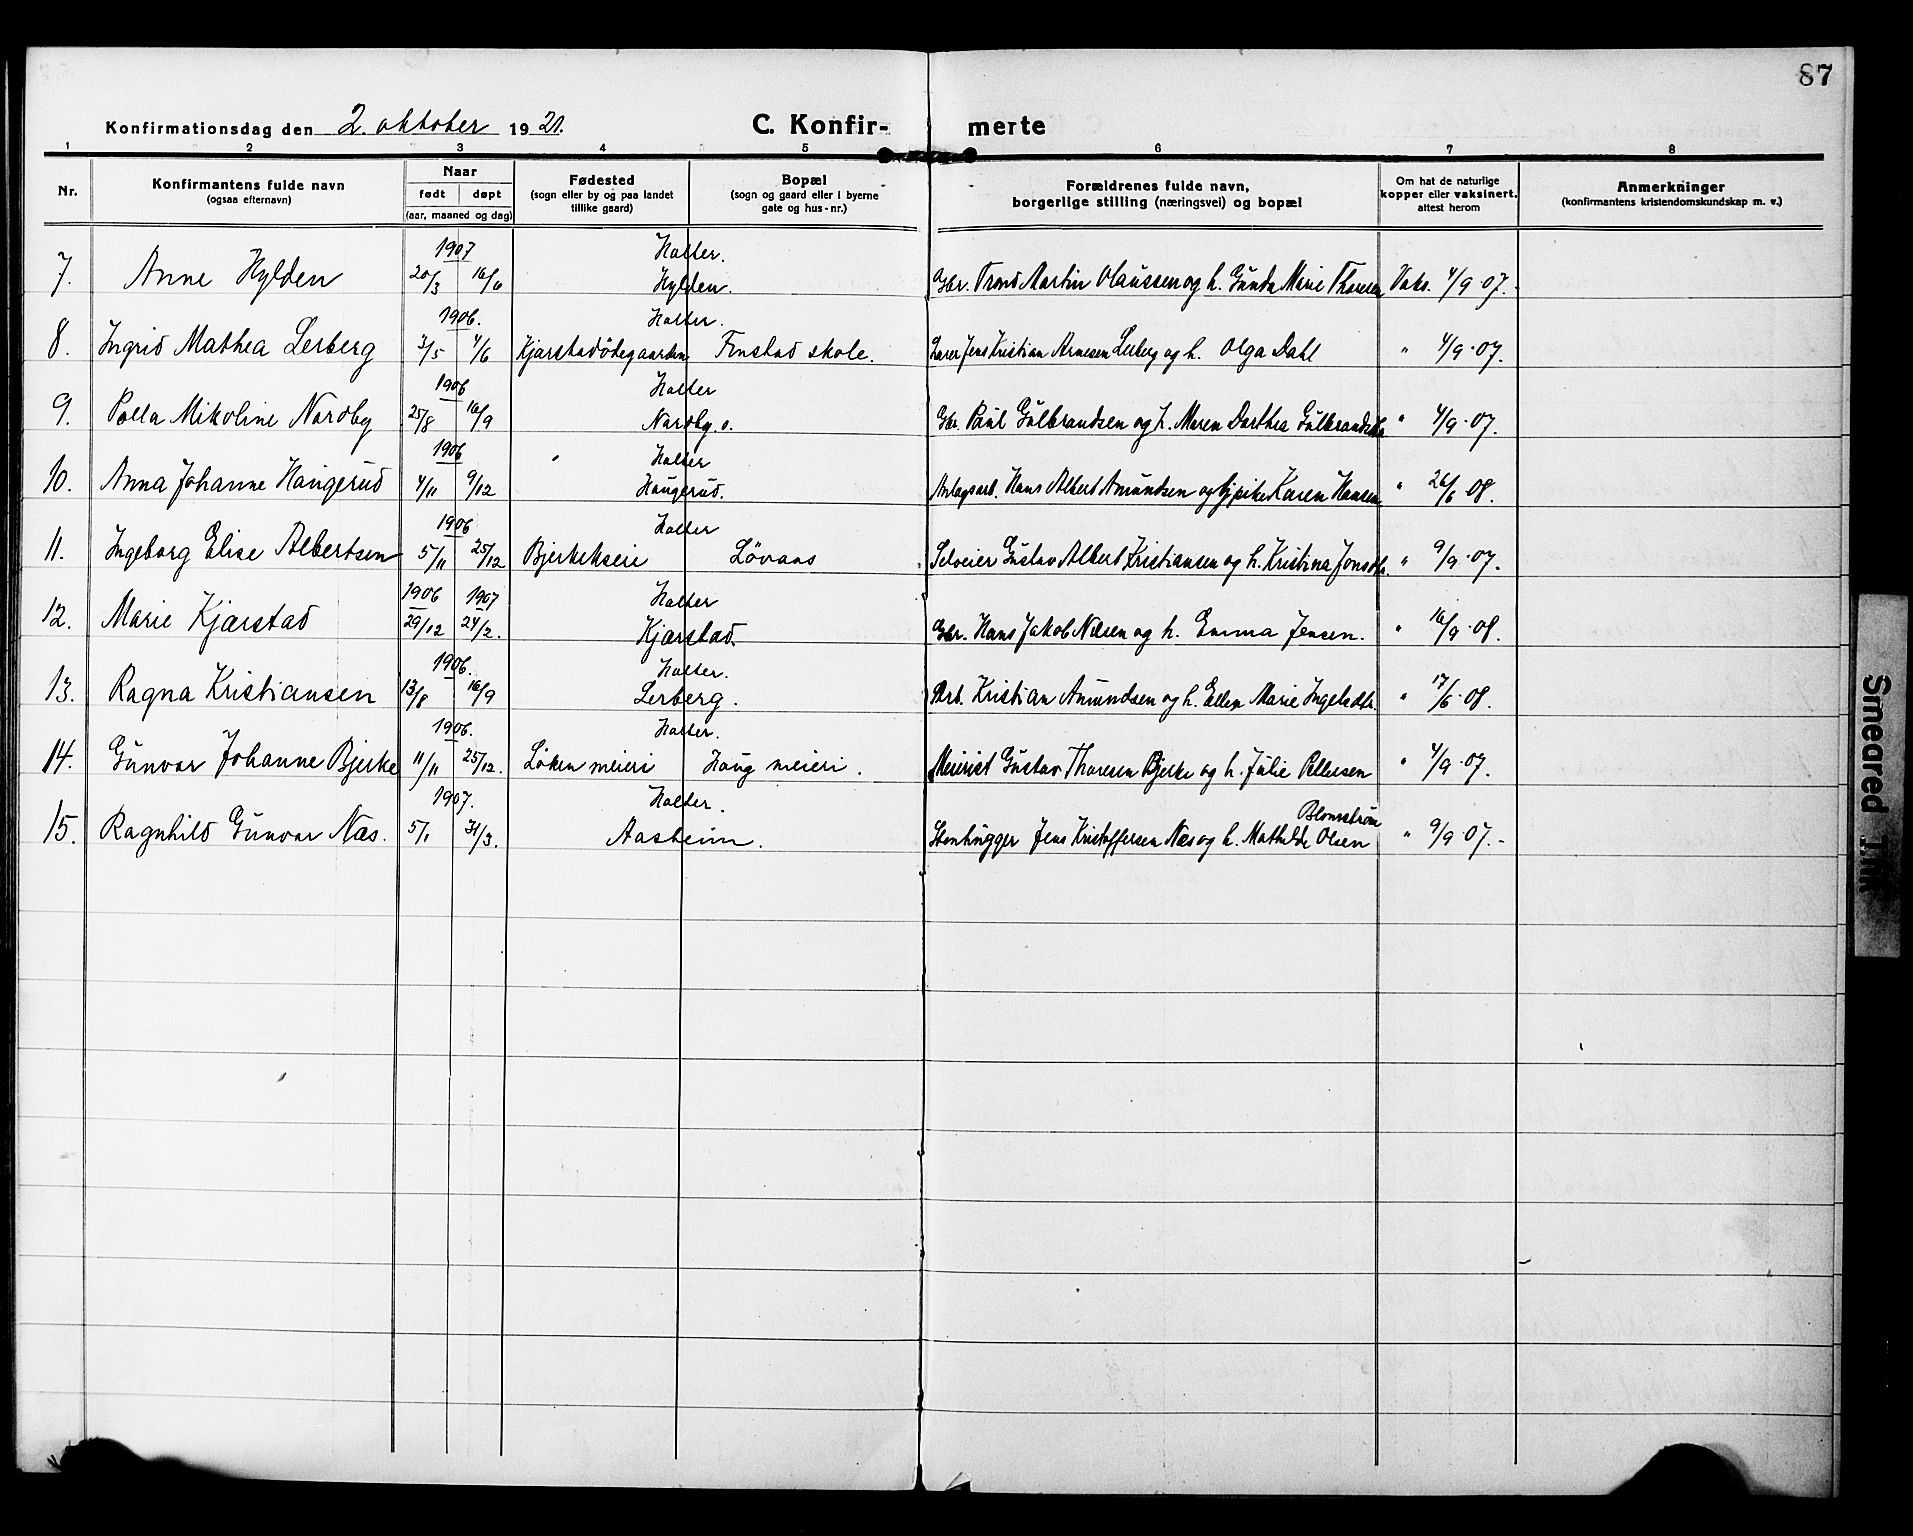 87
Konfirmationsdag den 2. oktober 1921.
C. Konfir- merte
1 2 3 4 5 6 7 8
Nr.
Konfirmantens fulde navn
(ogsaa efternavn)
Naar
født døpt
(aar, maaned og dag)
Fødested
(sogn eller by og paa landet
tillike gaard)
Bopæl
(sogn og gaard eller i byerne
gate og hus-nr.)
Forældrenes fulde navn,
borgerlige stilling (næringsvei) og bopæl
Om hat de naturlige
kopper eller vaksinert,
attest herom
Anmerkninger
(konfirmantens kristendomskundskap m. v.)
1907 Holter.
7. Anne Hylden 20/3 16/6 Hylden. Gbr. Trond Martin Olaussen og h. Gunda Marie Thoresen Vaks. 4/9 07.-
1906. Holter.
8. Ingrid Mathea Lerberg 3/5 4/6 Kjærstadødegaarden Finstad skole. Lærer Jens Kristian Arnesen Lerberg og h. Olga Dahl " 4/9 07.
1906 Holter
9. Palla Mikoline Nordby 25/8 16/9 Nordby. o. Gbr. Paul Gulbrandsen og h. Maren Dorthea Gulbrandsdtr. " 4/9 07.
1906 " Holter
10. Anna Johanne Haugerud 4/11 9/12 Haugerud. Anlægsarb. Hans Albert Amundsen og Karen Hansen " 26/6 08.
1906 Holter
11. Ingeborg Elise Albertsen 5/11 25/12 Bjerkekseie Løvaas Selveier Gustav Albert Kristiansen og h. Kristina Jonsdtr. " 9/9 07.
1906 1907 Holter
12. Marie Kjærstad 29/12 24/2. Kjærstad. Gbr. Hans Jakob Nilsen og h. Emma Jensen. " 16/9 08.
1906. Holter.
13. Ragna Kristiansen 13/8 16/9 Lerberg. Arb. Kristian Amundsen og h. Ellen Marie Ingebdtr. " 17/6 08.
1906. Holter.
14. Gunvor Johanne Bjerke 11/11 25/12. Løken meieri Haug meieri. Meierist Gustav Thoresen Bjerke og h. Julie Pettersen " 4/9 07.
1907. Holter. Blomstrøm
15. Ragnhild Gunvor Næs. 5/1 31/3. Aasheim. Stenhugger Jens Kristoffersen Næs og h. Mathilde Olsen " 9/9 07.-
Smeared Ink